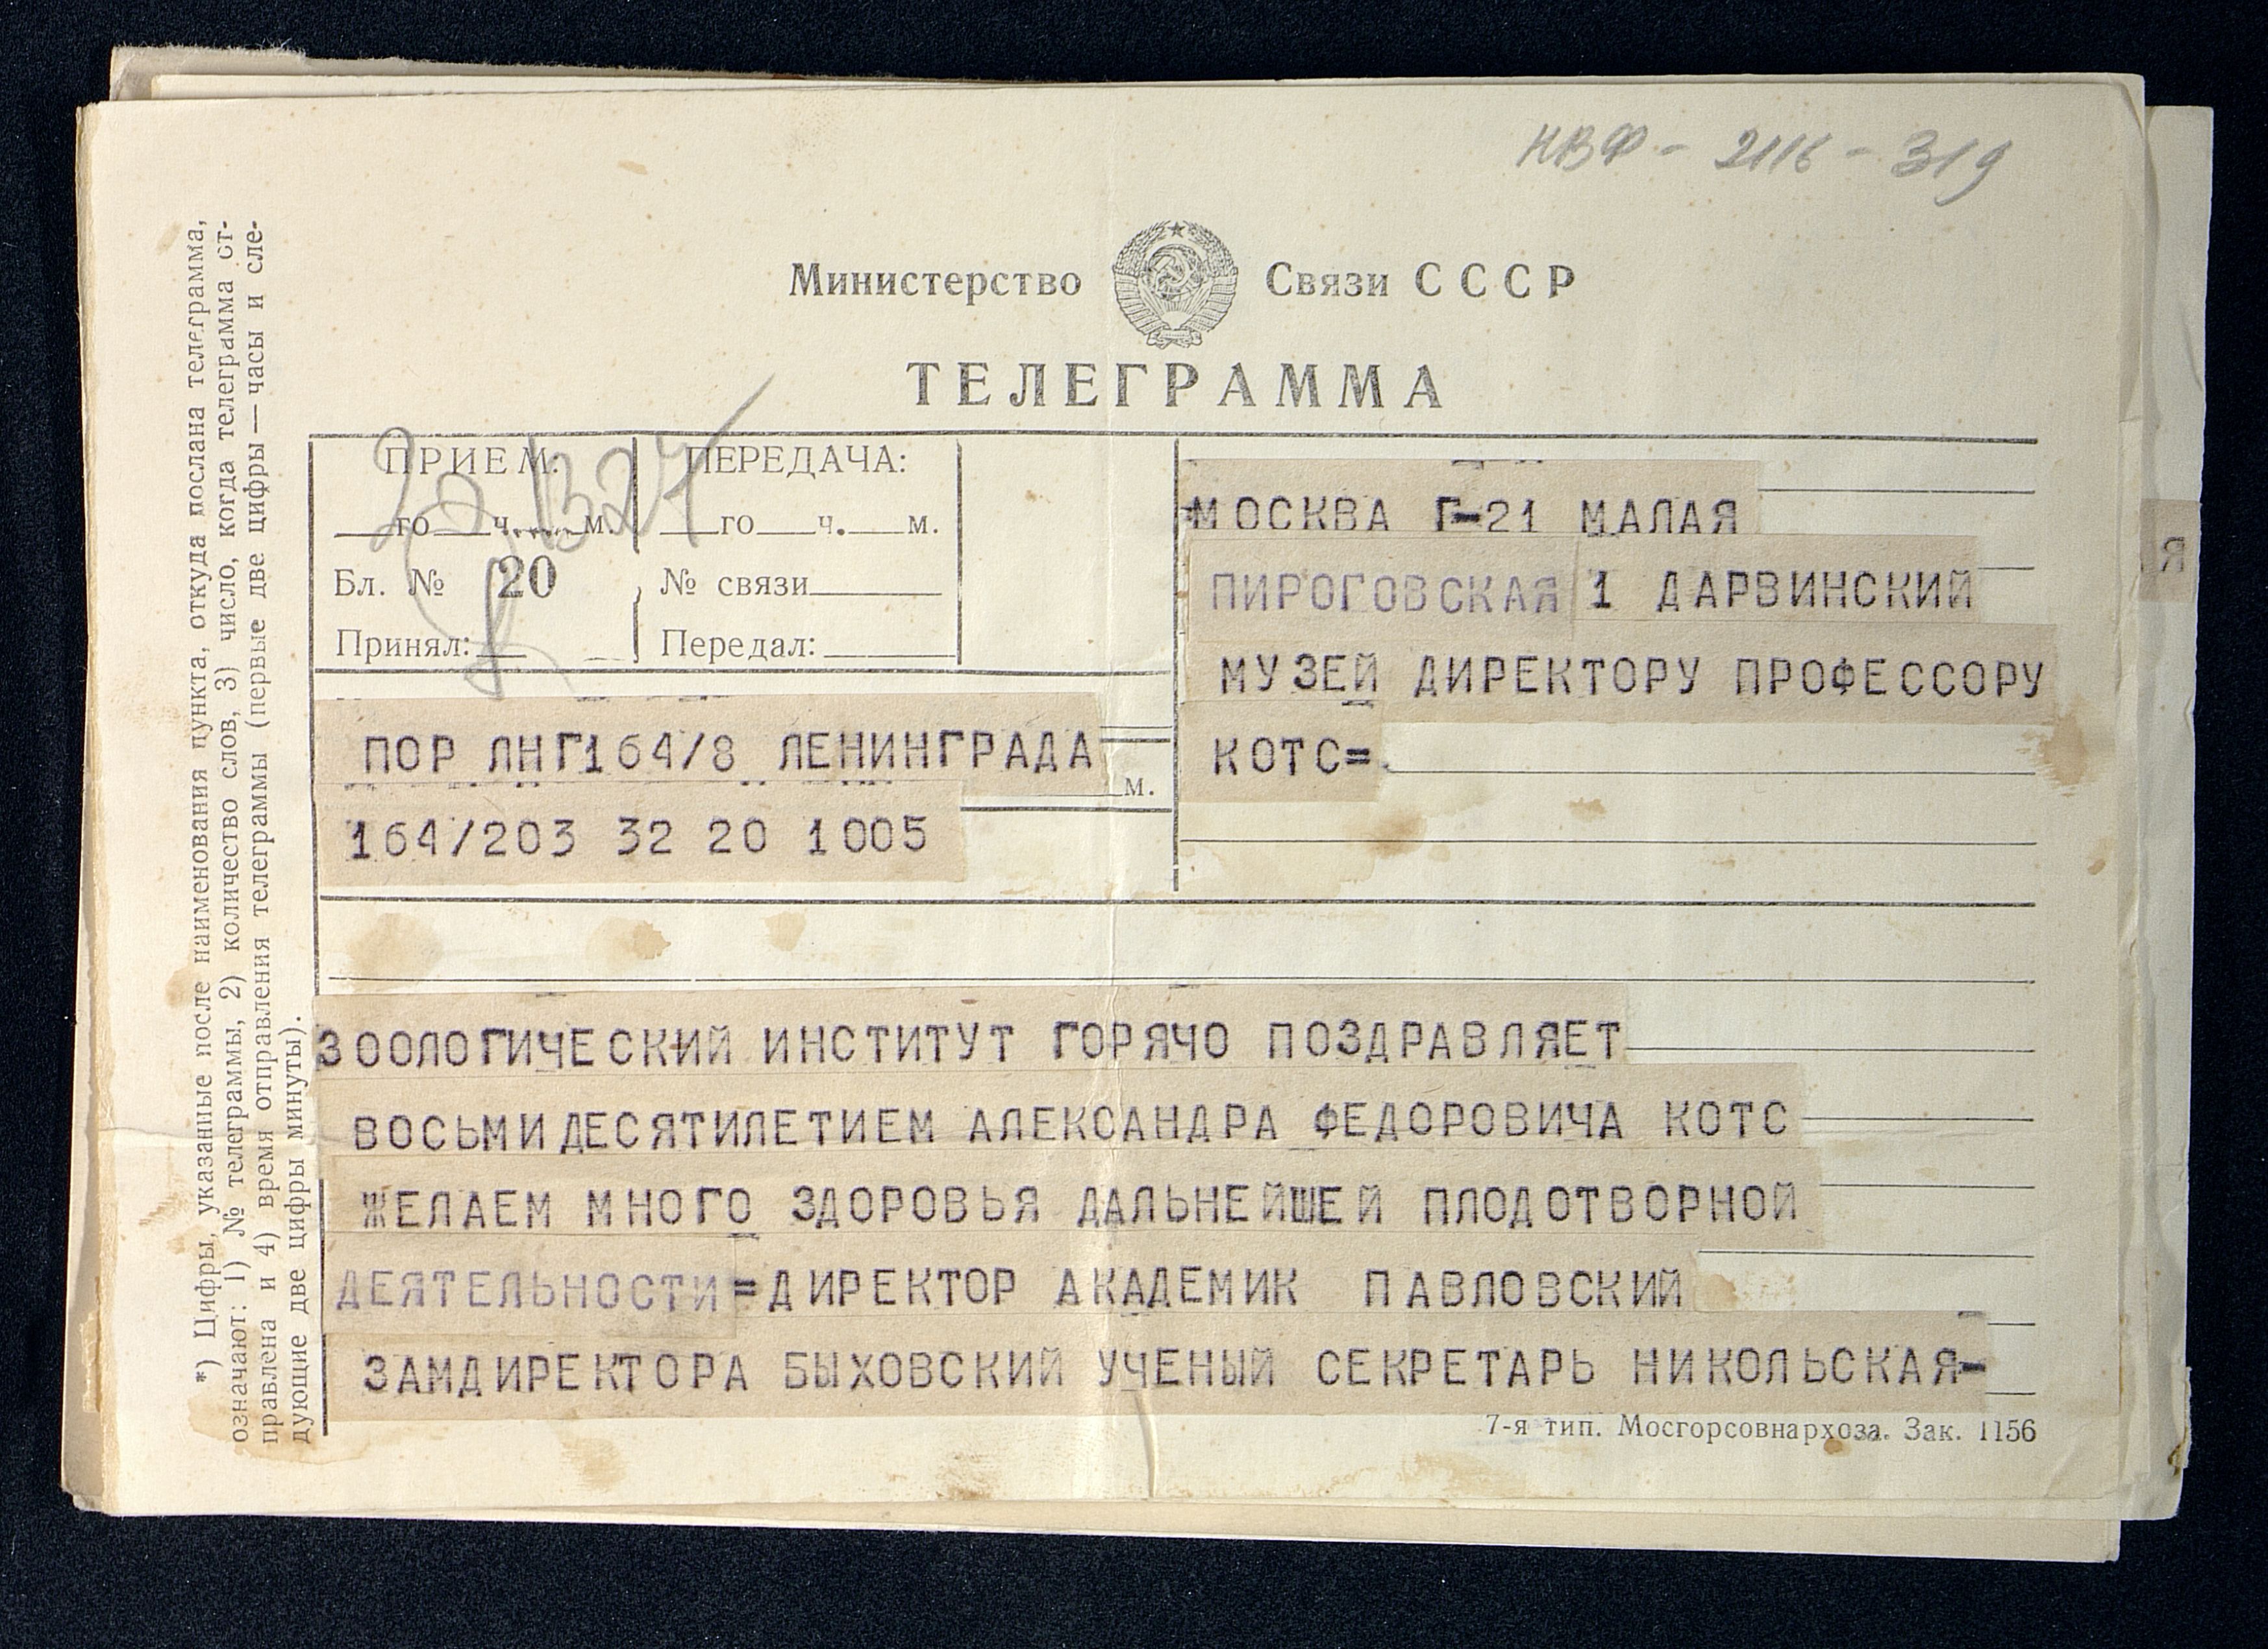 НВФ - 2116 - 319
Министерство Связи СССР
ТЕЛЕГРАММА
ПРИЕМ:
го ч. м.
Бл. № 20
Принял:
ПЕРЕДАЧА:
го ч. м.
№ связи
Передал:
МОСКВА Г-21 МАЛАЯ
ПИРОГОВСКАЯ 1 ДАРВИНСКИЙ
МУЗЕЙ ДИРЕКТОРУ ПРОФЕССОРУ
КОТС=
ПОР ЛНГ164/8 ЛЕНИНГРАДА
м.
164/203 32 20 1005
ЗООЛОГИЧЕСКИЙ ИНСТИТУТ ГОРЯЧО ПОЗДРАВЛЯЕТ
ВОСЬМИДЕСЯТИЛЕТИЕМ АЛЕКСАНДРА ФЕДОРОВИЧА КОТС
ЖЕЛАЕМ МНОГО ЗДОРОВЬЯ ДАЛЬНЕЙШЕЙ ПЛОДОТВОРНОЙ
ДЕЯТЕЛЬНОСТИ=ДИРЕКТОР АКАДЕМИК ПАВЛОВСКИЙ
ЗАМДИРЕКТОРА БЫХОВСКИЙ УЧЕНЫЙ СЕКРЕТАРЬ НИКОЛЬСКАЯ-
7-я тип. Мосгорсовнархоза. Зак. 1156
*) Цифры, указанные после наименования пункта, откуда послана телеграмма,
означают: 1) № телеграммы, 2) количество слов, 3) число, когда телеграмма от-
правлена и 4) время отправления телеграммы (первые две цифры — часы и сле-
дующие две цифры минуты).
Я